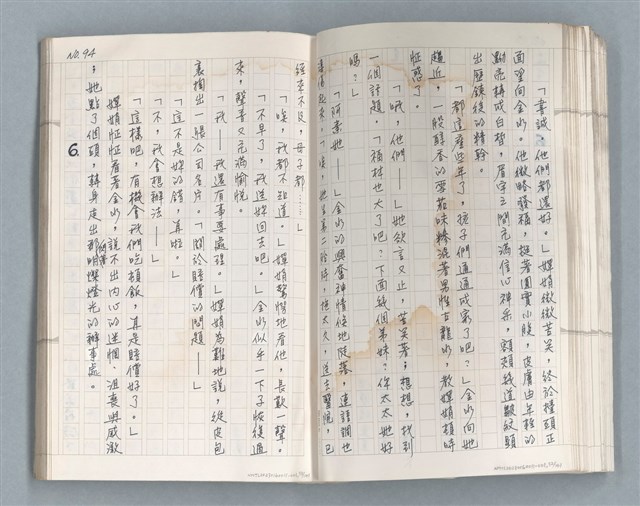 「書誠、他們都還好。」嬋娟微微苦笑，終於擡頭正
面望向金水。他微略發福，挺著圓實小腹，皮膚由年輕的
黝亮轉成白皙，眉宇之間充滿信心神采，額頰幾道皺紋顯
出歷鍊後的精幹。
「都這麼些年了，孩子們通通成家了吧？」金水向她
趨近，一股醇厚的雪茄味糝混著男性古龍水，教嬋娟頓時
怔惑了。
「哦，他們——」她欲言又止，苦笑著；想想，找到
一個話題，「福林也大了吧？下面幾個弟妹？你太太她好
嗎？」
「阿素她——」金水的興奮神情倏地陡落，連語調也
「唉，我都不知道。」嬋娟驚惕地看他，長歎一聲。
「不早了，我送妳回去吧。」金水似乎一下子恢復過
來，聲音又充滿愉悅。
「我——我還有事要處理。」嬋娟為難地說，從皮包
裏掏出一張公司名片。「關於賠償的問題——」
「這不是妳的錯，真的。」
「不，我會想辦法——」
「這樣吧，有機會我們吃頓飯，真是賠償好了。」
嬋娟怔怔看著金水，說不出內心的迷惘、沮喪與感激
；她點了個頭，轉身走出那明燦燈光的辦事處。
6.
No. 94